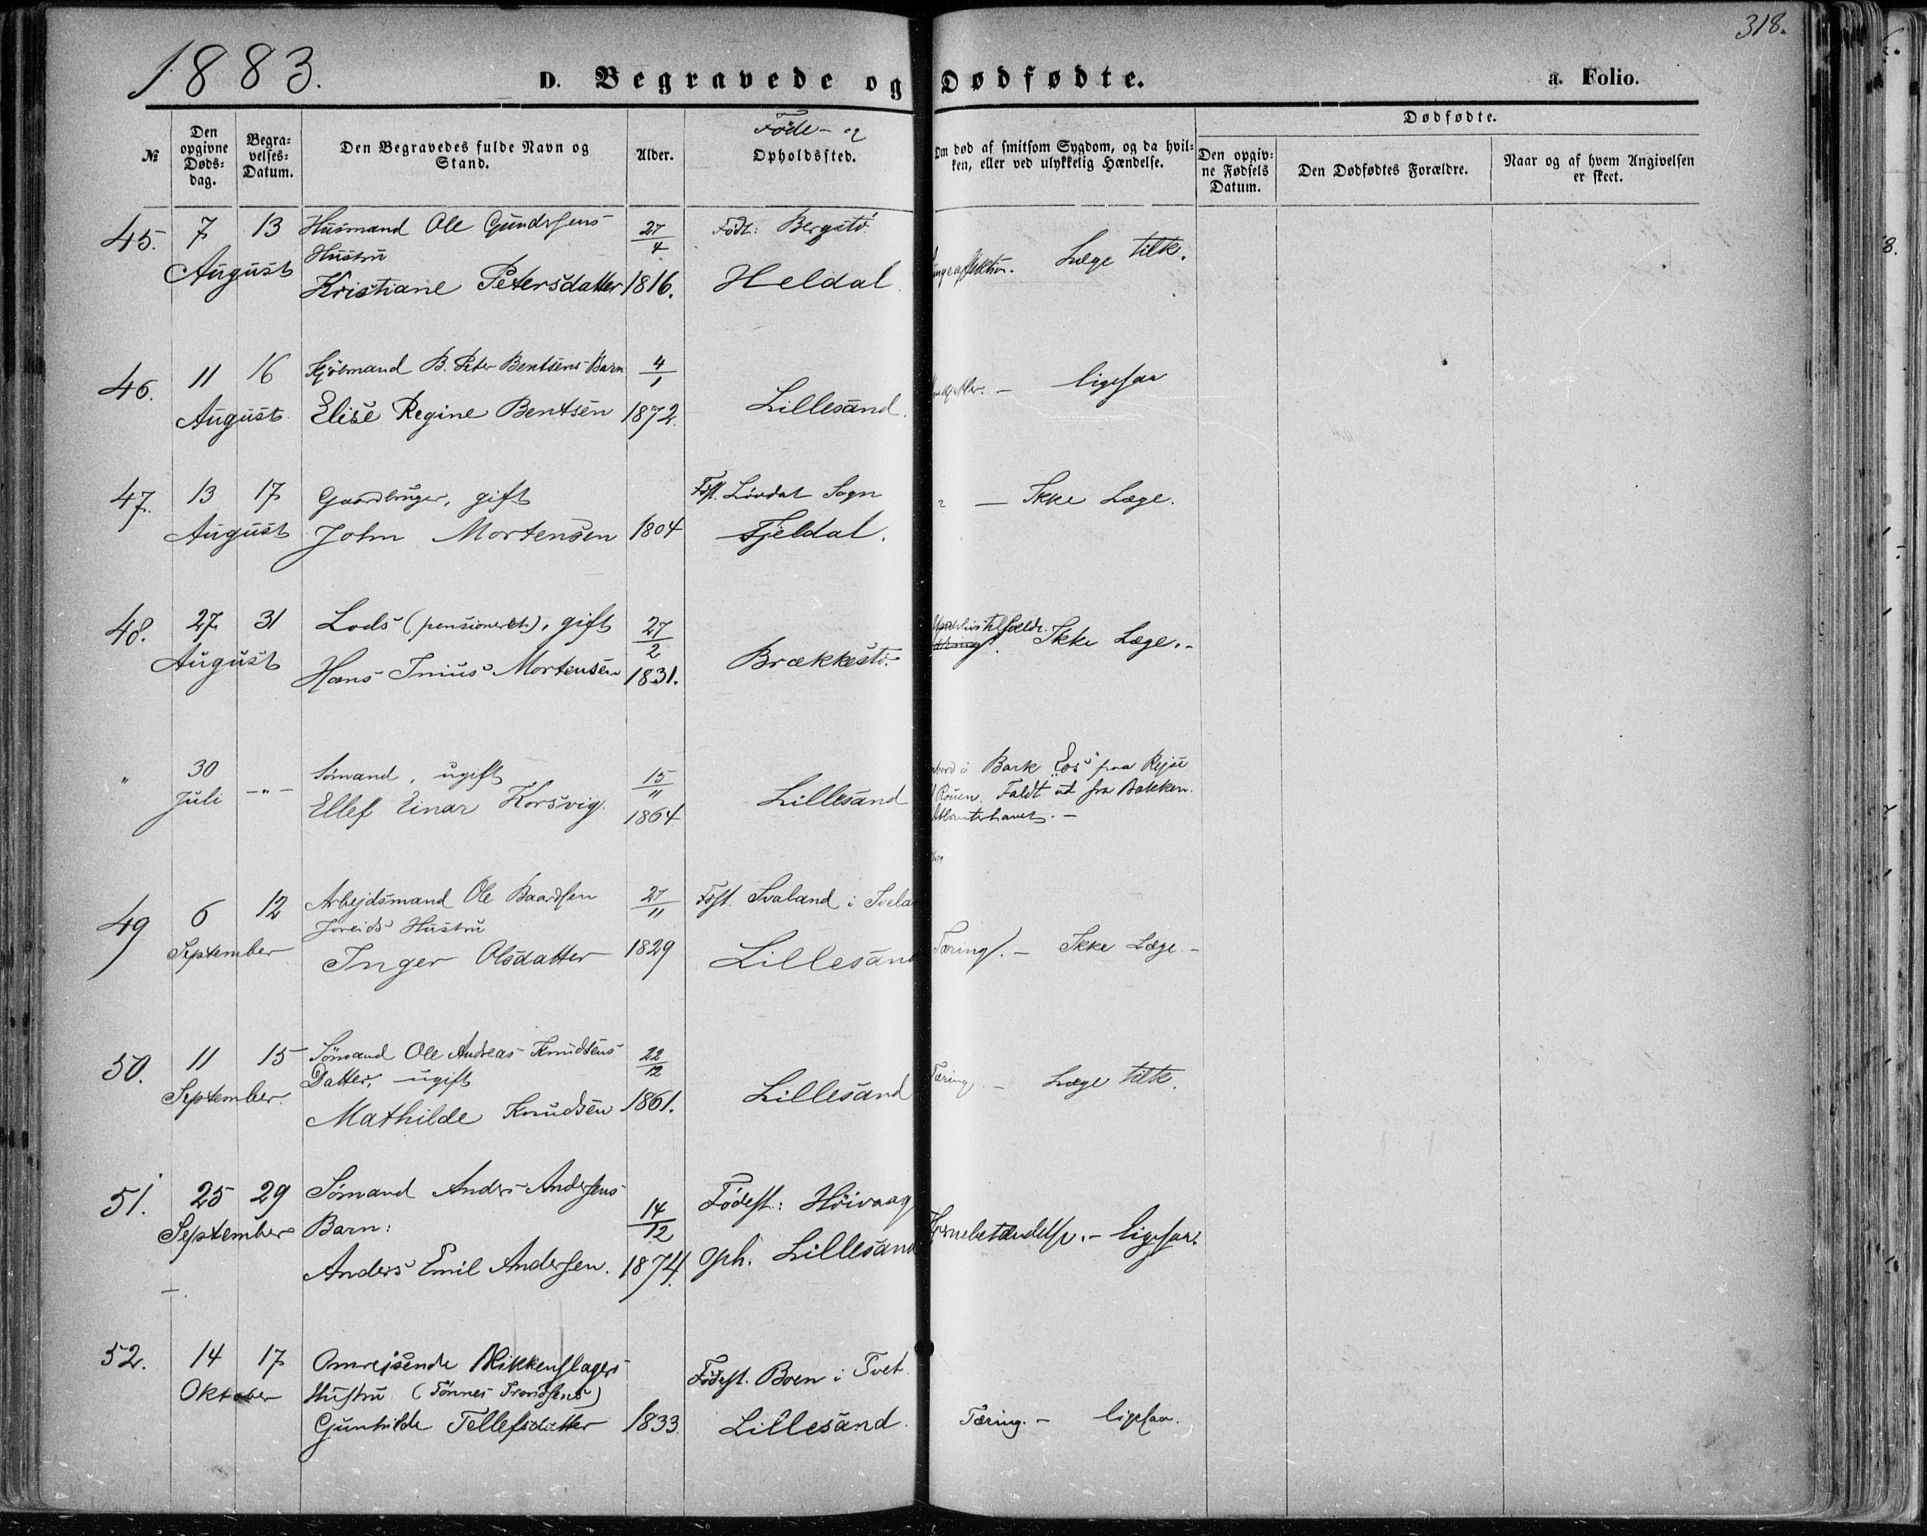 318.
1883.
D. Begravede og Dødfødte.
a. Folio.
№
Den opgivne Døds-dag.
Begra-velses-Datum.
Den Begravedes fulde Navn og Stand.
Alder.
Føde- og
Opholdssted.
Om død af smitsom Sygdom, og da hvil-ken, eller ved ulykkelig Hændelse.
Dødfødte.
Den opgiv-ne Fødsels Datum.
Den Dødfødtes Forældre.
Naar og af hvem Angivelsen er skeet.
45. 7 13 Husmand Ole Gundersens 27/4 Født: Bergstø
Hustru
August Kristiane Petersdatter 1816. Heldal. Læge tilk.
46. 11 16 B. Peter Bentsens Barn 4/1 ligesaa
August Elise Regine Bentsen 1872. Lillesand.
47. 13 17 Gaardbruger, gift Sogn — Ikke Læge.
August John Mortensen 1804 Fjeldal.
48. 27 31 Lods (pensioneret), gift 27/2
August Hans Mortensen 1831. Brækkestø. Ikke Læge.-
" 30 Sømand, ugift 15/11 i Bark "Eos" paa Rejse
Juli -"- Ellef Einar Korsvig. 1864 Lillesand Rouen. Faldt ud fra Bakken.
Atlanterhavet. —
49 6 12 Arbejdsmand Ole Baardsen 27/11 Føst. Svaland i
Hustru
September Inger Olsdatter 1829 Lillesand Tæring. — Ikke Læge -
50. 11 15 Sømand Ole Andreas Knudsens 22/12
Datter, ugift
September. Mathilde Knudsen 1861. Lillesand Tæring. — Læge tilk.
51. 25 29 Sømand Anders Andersens 14/12 Fødest: Høivaag
September Barn: Oph. Lillesand Hjernebetændelse. - ligesaa.
Anders Emil Andersen. 1874.
52. 14 17 Omrejsende Blikkenslagers Fødest. Boen i Tvet
Oktober Hustru (Tønnes Trondsens)
Gunhilde Tellefsdatter 1833. Lillesand. Tæring. - ligesaa.